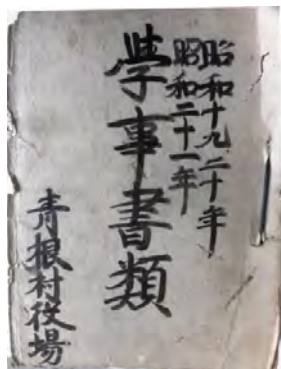 昭和十九、二十年
昭和二十一年
學事書類
青根村役場